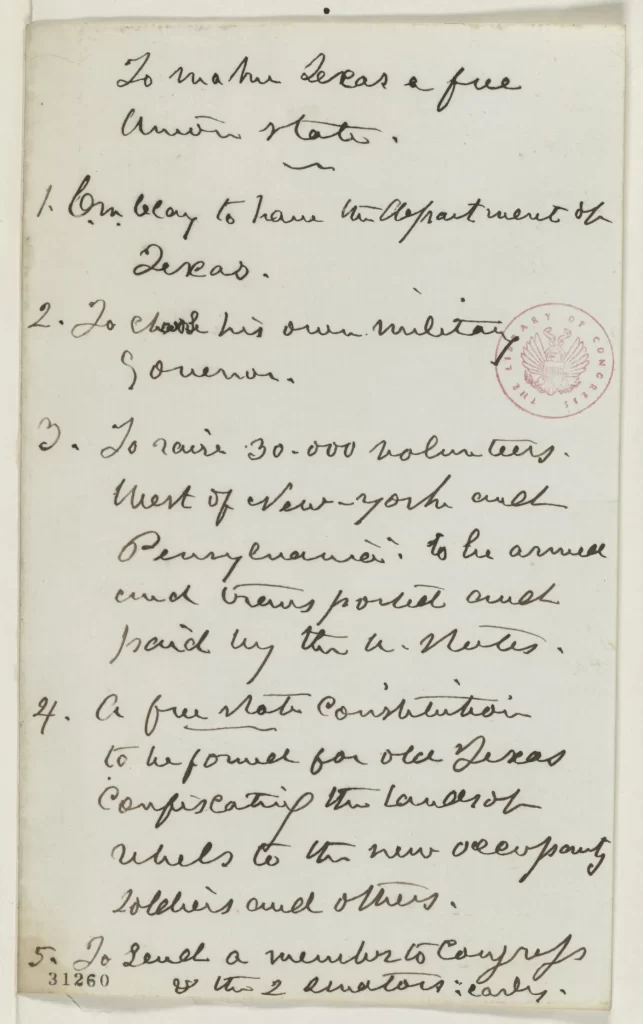 To make Texas a free
Union state.
1. C.M. Clay to have the department of
Texas.
2. To choose his own military
Govenor.
THE LIBRARY OF CONGRESS
3. To raise 30.000 volunteers.
West of New-York and
Pensylvania: to be armed
and transported and
paid by the U. States.
4. A free state Constitution
to be formed for old Texas
Confiscating the lands of
rebels to the new occupants
soldiers and others.
5. To send a member to Congress
& the 2 senators: early.
31260